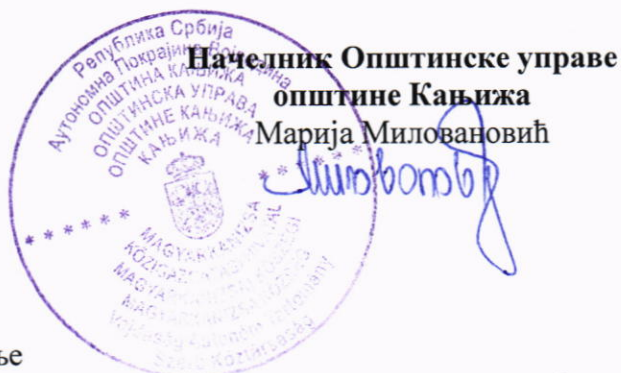 Начелник Општинске управе
општине Кањижа
Марија Миловановић
Република Србија
Аутономна Покрајина Војводина
ОПШТИНА КАЊИЖА
ОПШТИНСКА УПРАВА
ОПШТИНЕ КАЊИЖА
КАЊИЖА
MAGYARKANIZSA
MAGYARKANIZSA KÖZSÉG
Vajdaság Autonóm Tartomány
Szerb Köztársaság
ње